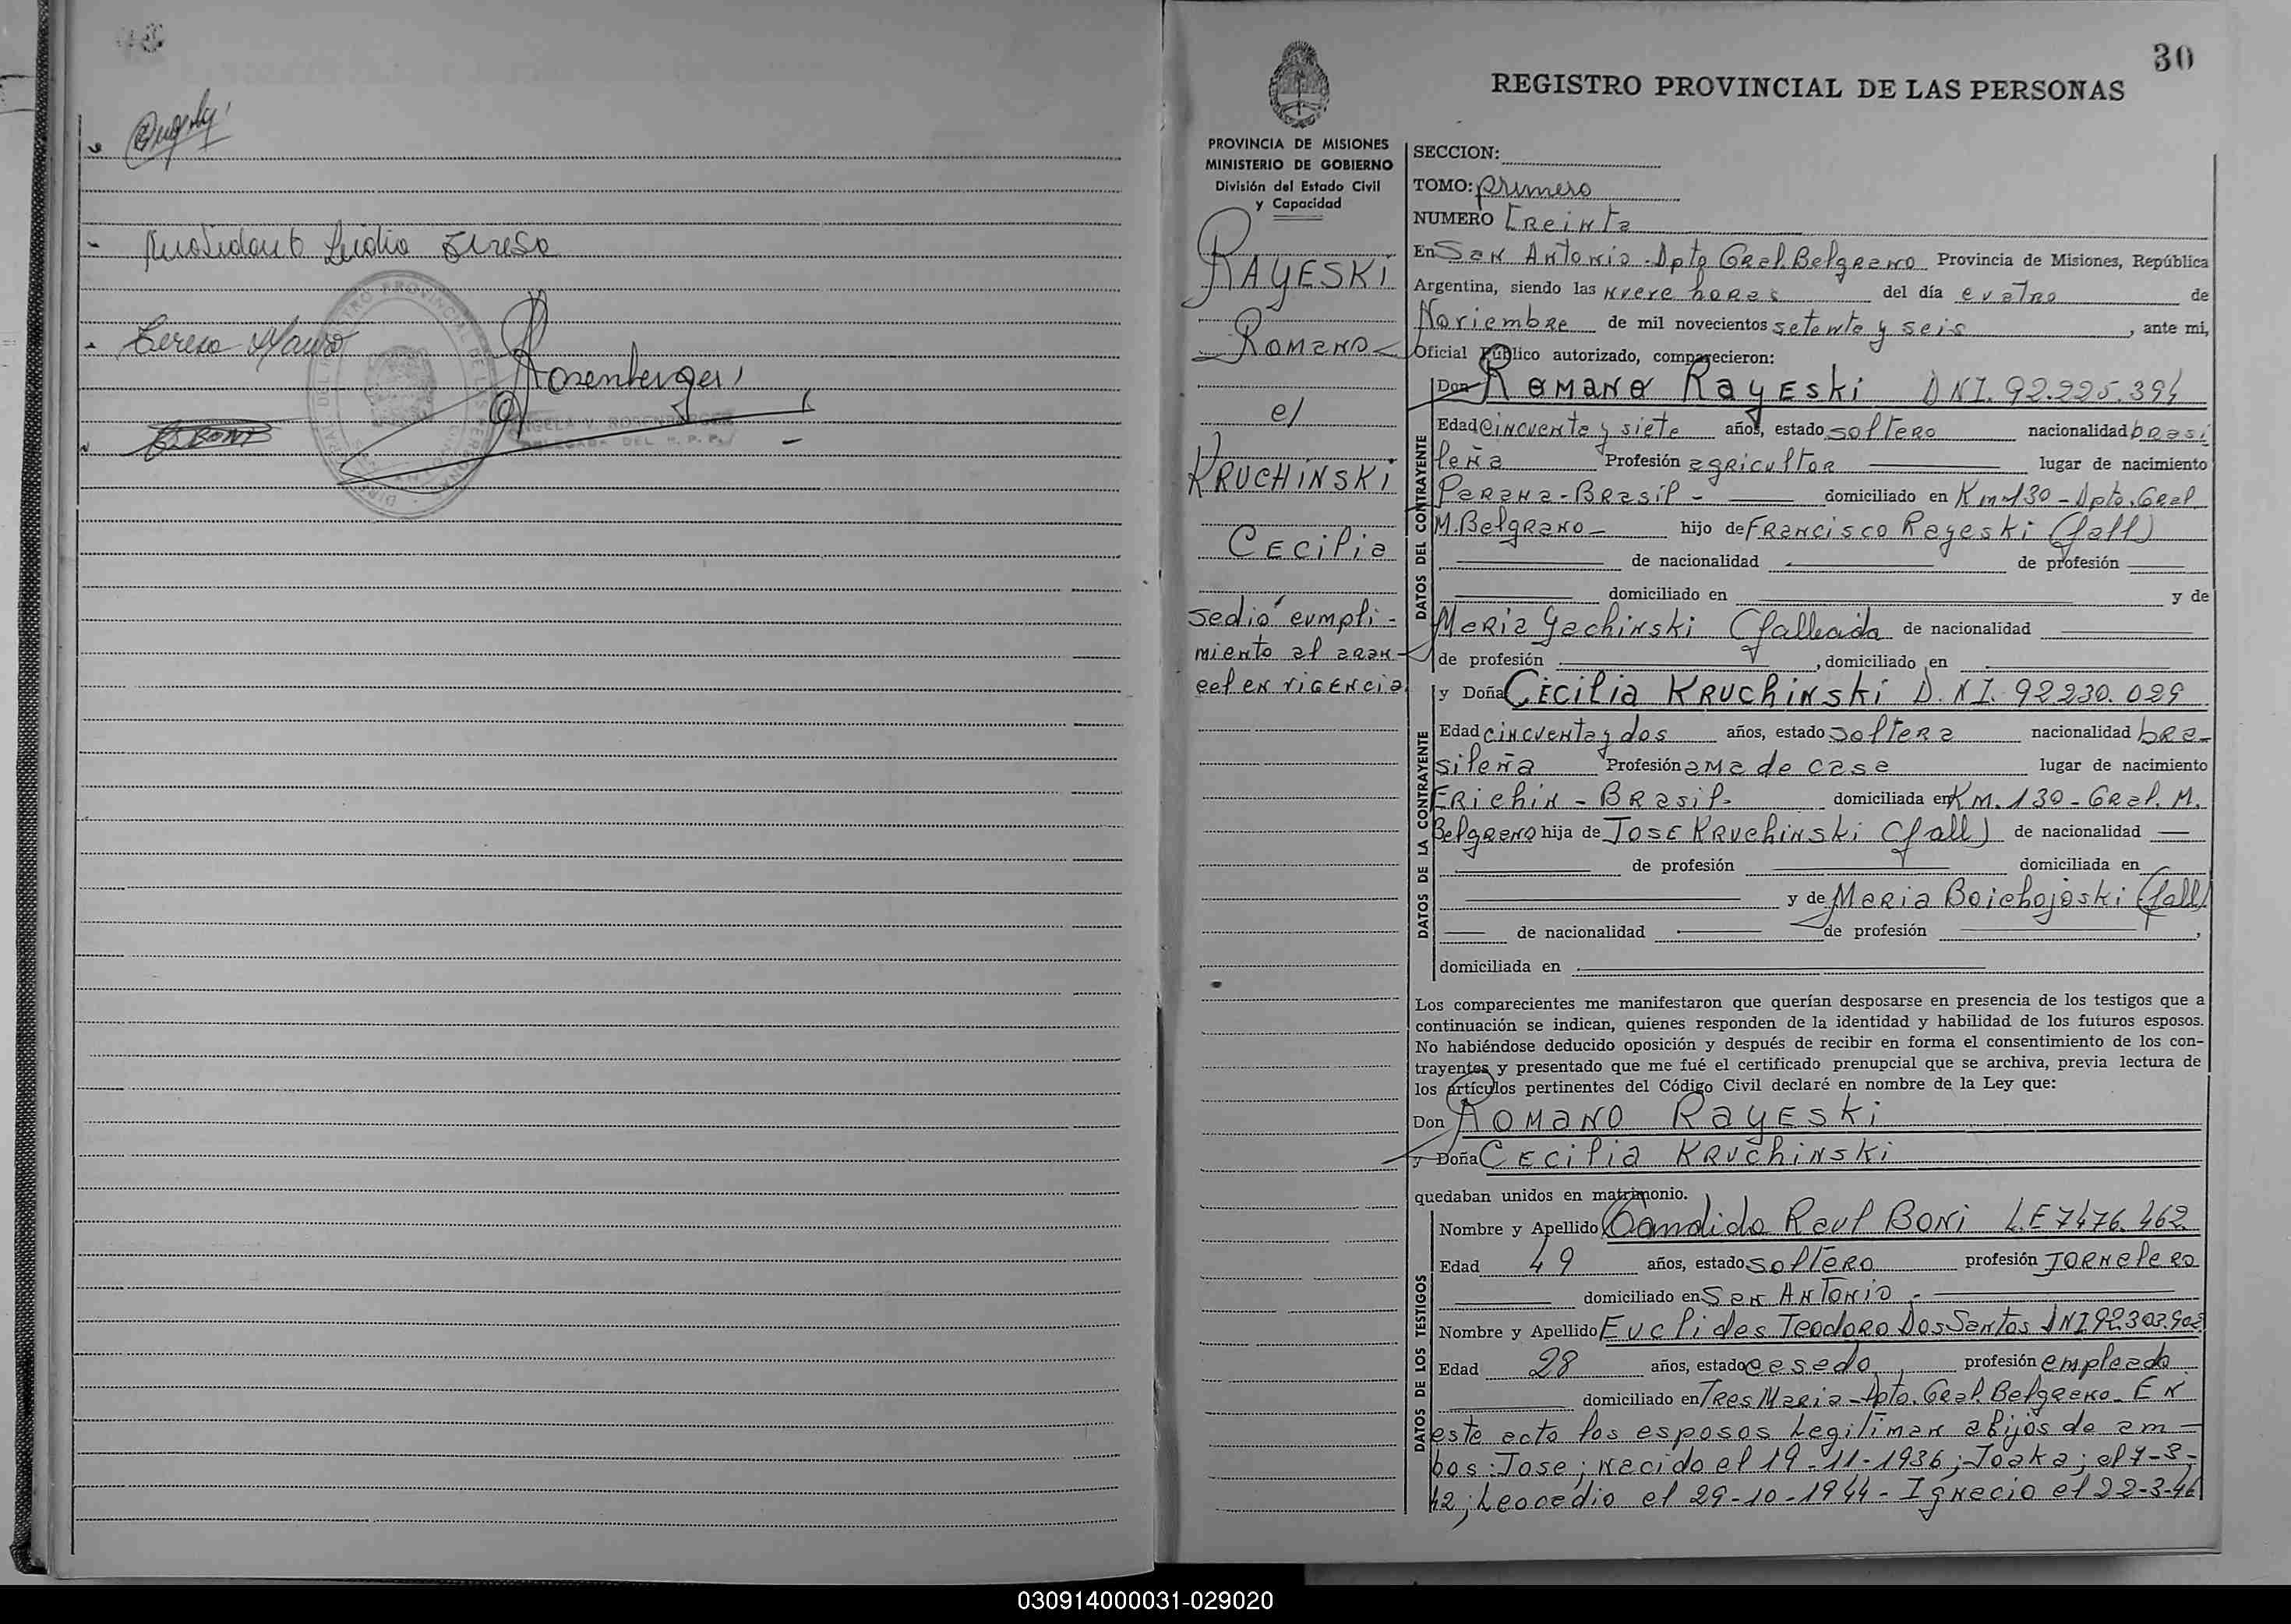 Teresa Mauro
Rosenberger
ANGELA V. ROSENBERGER
30
REGISTRO PROVINCIAL DE LAS PERSONAS
PROVINCIA DE MISIONES
MINISTERIO DE GOBIERNO
División del Estado Civil
y Capacidad
RAYESKI
Romano
c/
KRUCHINSKI
Cecilia
se dió cumpli-
miento al aran
cel en vigencia
SECCION:
TOMO: primero
NUMERO treinta
En San Antonio - Dpto Gral. Belgrano Provincia de Misiones, República
Argentina, siendo las nueve horas del día cuatro de
Noviembre de mil novecientos setenta y seis, ante mi,
Oficial Público autorizado, comparecieron:
DATOS DEL CONTRAYENTE
Don Romano Rayeski DNI. 92.225.394
Edad cincuenta y siete años, estado soltero nacionalidad brasi
leña Profesión agricultor lugar de nacimiento
Parana - Brasil - domiciliado en Km 130 - Dpto. Gral
M. Belgrano - hijo de Francisco Rayeski (fall)
de nacionalidad de profesión
domiciliado en y de
Maria Gachinski (fallecida de nacionalidad
de profesión , domiciliado en
DATOS DE LA CONTRAYENTE
y Doña Cecilia Kruchinski D.N.I. 92230.029
Edad cincuenta y dos años, estado soltera nacionalidad bra-
sileña Profesión ama de casa lugar de nacimiento
Erichin - Brasil - domiciliada en Km. 130 - Gral. M.
Belgrano hija de Jose Kruchinski (fall) de nacionalidad
de profesión domiciliada en
y de Maria Boichojoski (fall)
de nacionalidad de profesión ,
domiciliada en
Los comparecientes me manifestaron que querían desposarse en presencia de los testigos que a
continuación se indican, quienes responden de la identidad y habilidad de los futuros esposos.
No habiéndose deducido oposición y después de recibir en forma el consentimiento de los con-
trayentes y presentado que me fué el certificado prenupcial que se archiva, previa lectura de
los artículos pertinentes del Código Civil declaré en nombre de la Ley que:
Don Romano Rayeski
y Doña Cecilia Kruchinski
quedaban unidos en matrimonio.
DATOS DE LOS TESTIGOS
Nombre y Apellido Candido Raul Boni L.E 7476.462
Edad 49 años, estado soltero profesión jornalero
domiciliado en San Antonio -
Nombre y Apellido Euclides Teodoro Dos Santos DNI 92.303.902
Edad 28 años, estado casado profesión empleado
domiciliado en Tres Maria - Dpto. Gral. Belgrano - En
este acto los esposos Legitiman a hijos de am-
bos: Jose; nacido el 19-11-1936; Joaka; el 7-3-
42; Leocadio el 29-10-1944 - Ignacio el 22-3-46
030914000031-029020